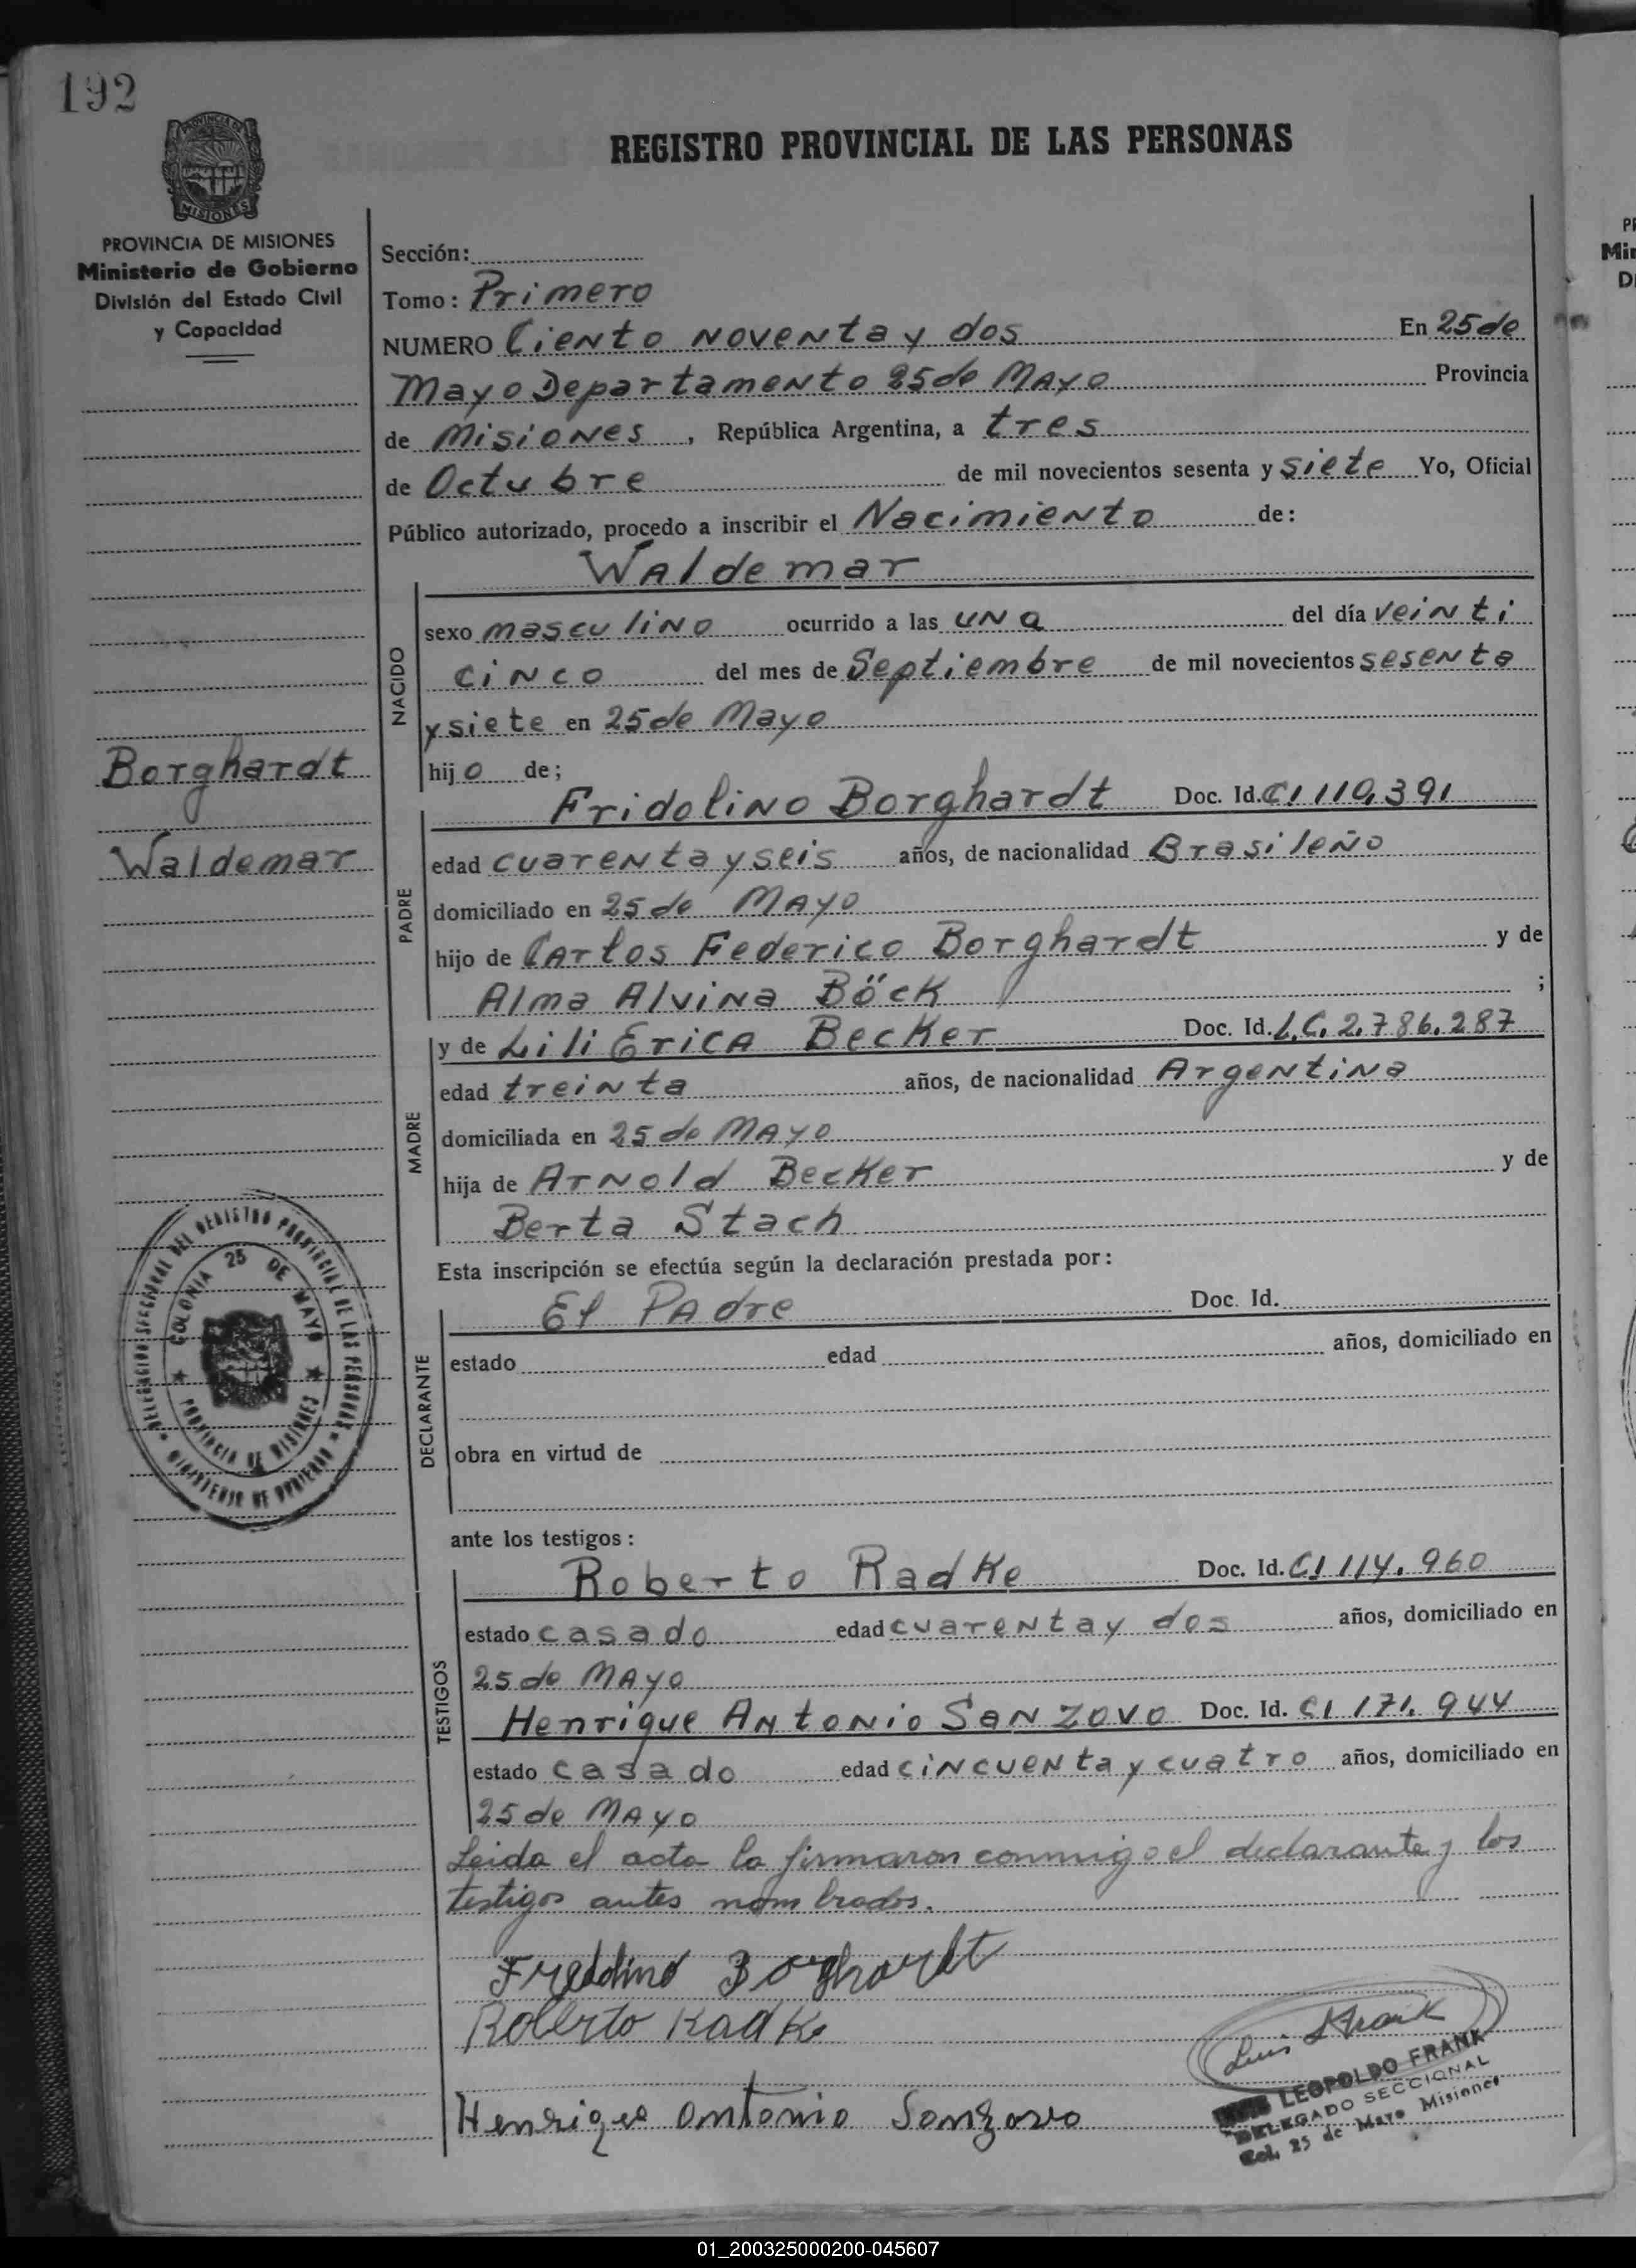 192
PROVINCIA DE MISIONES
PROVINCIA DE MISIONES
Ministerio de Gobierno
División del Estado Civil
y Capacidad
REGISTRO PROVINCIAL DE LAS PERSONAS
Sección:
Tomo: Primero
NUMERO Ciento Noventa y dos En 25 de
Mayo Departamento 25 de Mayo Provincia
de Misiones, República Argentina, a tres
de Octubre de mil novecientos sesenta y siete Yo, Oficial
Público autorizado, procedo a inscribir el Nacimiento de:
Waldemar
NACIDO
sexo masculino ocurrido a las una del día veinti
cinco del mes de Septiembre de mil novecientos sesenta
y siete en 25 de Mayo
hijo de;
Borghardt
Waldemar
Fridolino Borghardt Doc. Id. CI 110,391
PADRE
edad cuarenta y seis años, de nacionalidad Brasileño
domiciliado en 25 de Mayo
hijo de Carlos Federico Borghardt y de
Alma Alvina Böck ;
y de Lili Erica Becker Doc. Id. L.C. 2.786.287
MADRE
edad treinta años, de nacionalidad Argentina
domiciliada en 25 de Mayo
hija de Arnold Becker y de
Berta Stach
Esta inscripción se efectúa según la declaración prestada por:
El Padre Doc. Id.
DECLARANTE
estado edad años, domiciliado en
obra en virtud de
DELEGACION SECCIONAL DEL REGISTRO PROVINCIAL DE LAS PERSONAS
MINISTERIO DE GOBIERNO
COLONIA 25 DE MAYO
PROVINCIA DE MISIONES
ante los testigos:
Roberto Radke Doc. Id. CI 114.960
TESTIGOS
estado casado edad cuarenta y dos años, domiciliado en
25 de Mayo
Henrique Antonio Sanzovo Doc. Id. CI 171.944
estado casado edad cincuenta y cuatro años, domiciliado en
25 de Mayo
Leida el acta la firmaron conmigo el declarante y los
testigos antes nombrados.
Fredolino Borghardt
Roberto Radke
Luis L Frank
Henrique Antonio Sanzovo
LEOPOLDO FRANK
DELEGADO SECCIONAL
Col. 25 de Mayo Misiones
01_200325000200-045607